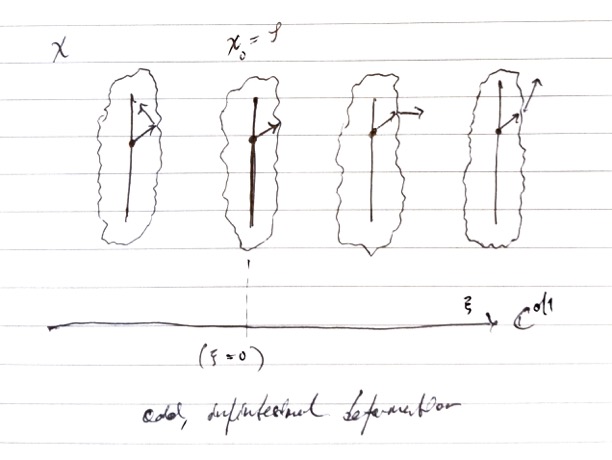 X
X₀ = S
ξ ℂ^{0|1}
(ξ = 0)
odd, infinitesimal deformation